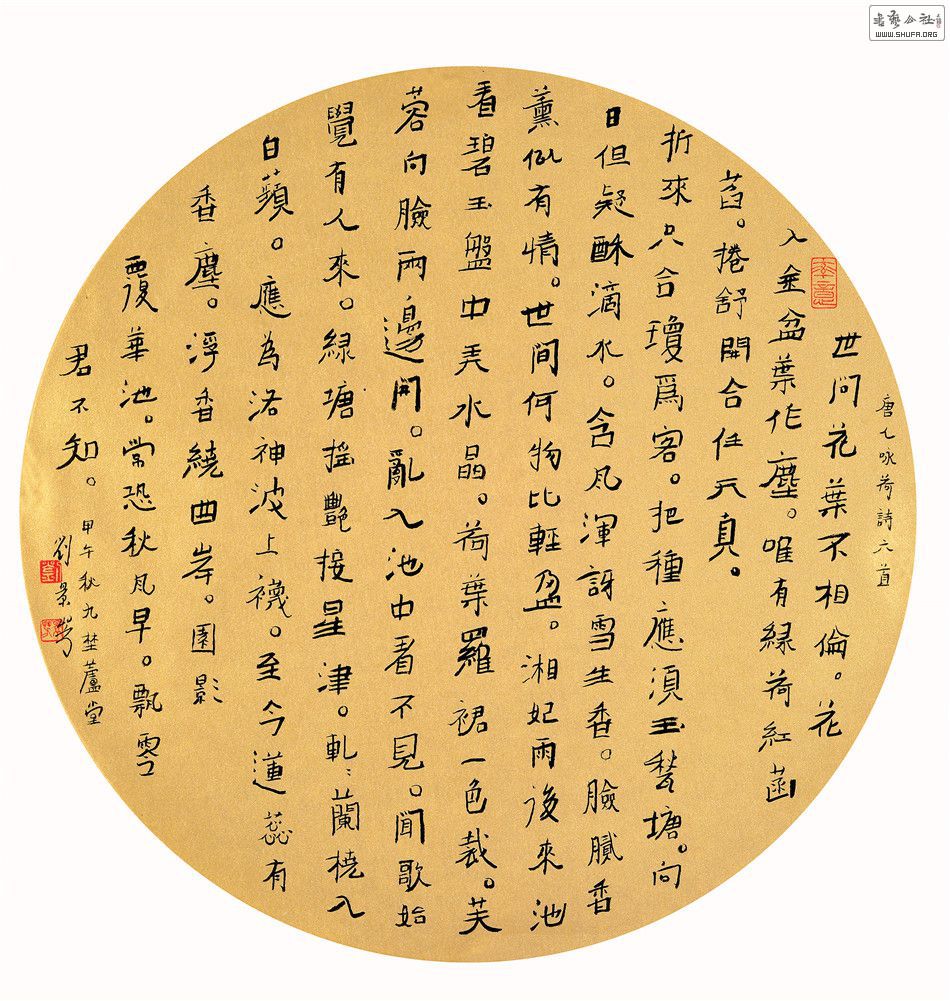 唐人咏荷詩六首
世間花葉不相倫。花
入金盆葉作塵。唯有緑荷紅菡
萏。捲舒開合任天真。
折來只合瓊爲客。把種應須玉甃塘。向
日但疑酥滴水。含風渾訝雪生香。臉膩香
薰似有情。世間何物比輕盈。湘妃雨後來池
看碧玉盤中弄水晶。荷葉羅裙一色裁。芙
蓉向臉兩邊開。亂入池中看不見。聞歌始
覺有人來。緑塘摇艷接星津。軋〻蘭橈入
白蘋。應為洛神波上襪。至今蓮蕊有
香塵。浮香繞曲岸。圓影
覆華池。常恐秋風早。飄零
君不知。
甲午秋九埜蘆堂
劉景
率意
書藝公社
WWW.SHUFA.ORG